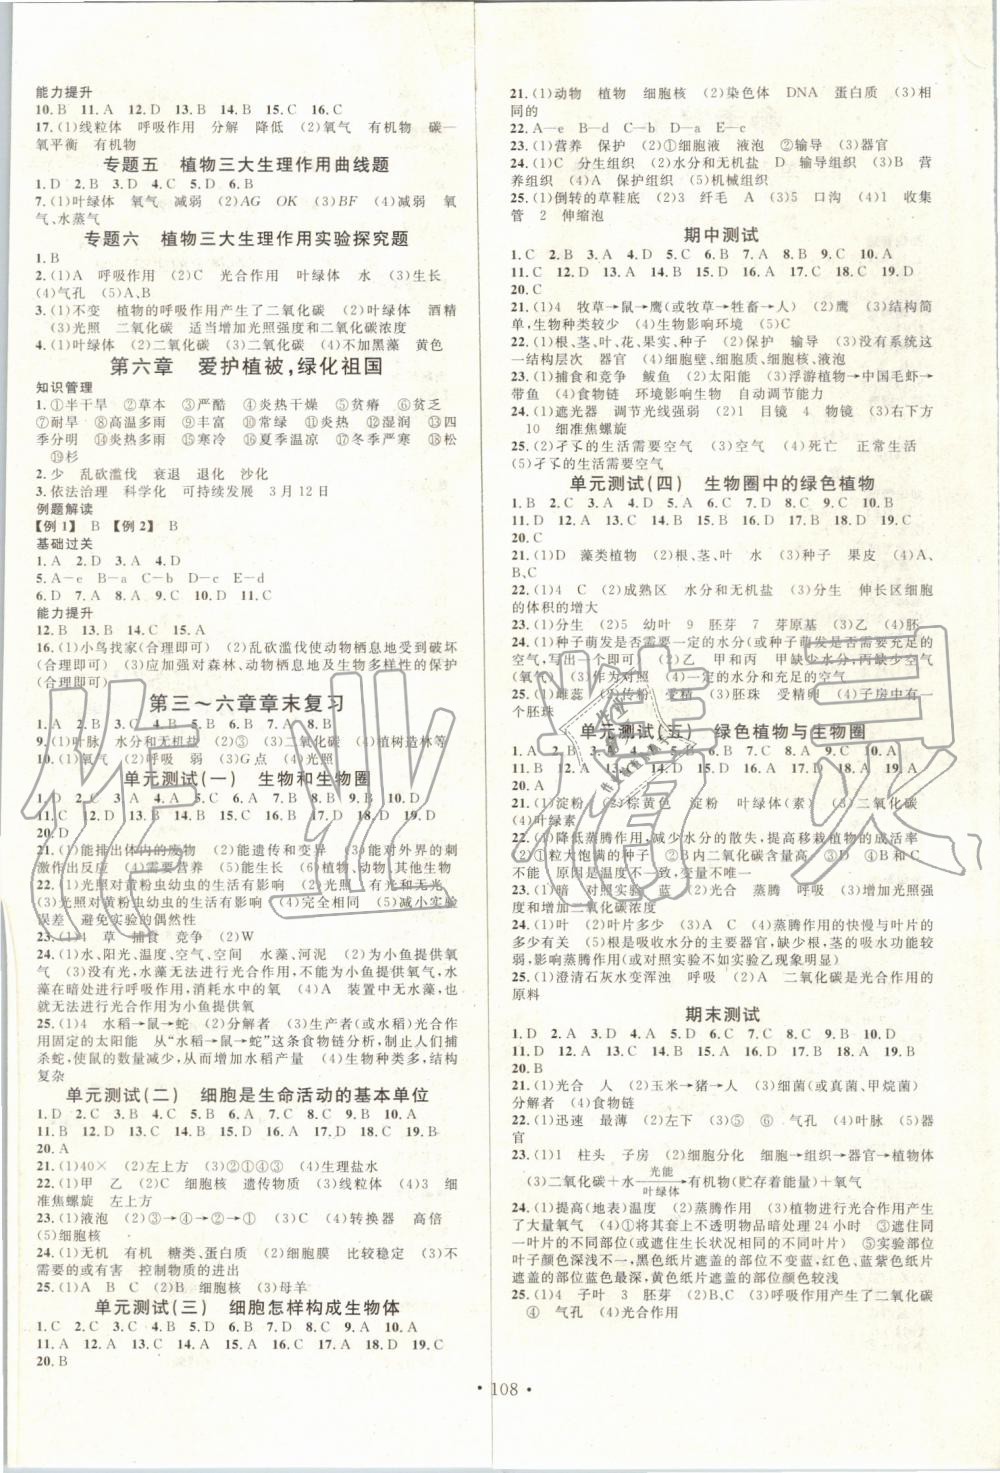 能力提升
10. B 11. A 12. D 13. B 14. B 15. C 16. C
17. (1)线粒体 呼吸作用 分解 降低 (2)氧气 有机物 碳—
氧平衡 有机物
专题五 植物三大生理作用曲线题
1. D 2. D 3. A 4. C 5. D 6. B
7. (1)叶绿体 氧气 减弱 (2)AG OK (3)BF (4)减弱 氧
气、水蒸气
专题六 植物三大生理作用实验探究题
1. B
2. (1)A 呼吸作用 (2)C 光合作用 叶绿体 水 (3)生长
(4)气孔 (5)A、B
3. (1)不变 植物的呼吸作用产生了二氧化碳 (2)叶绿体 酒精
(3)光照 二氧化碳 适当增加光照强度和二氧化碳浓度
4. (1)叶绿体 (2)二氧化碳 (3)二氧化碳 (4)不加黑藻 黄色
第六章 爱护植被,绿化祖国
知识管理
1. ①半干旱 ②草本 ③严酷 ④炎热干燥 ⑤贫瘠 ⑥贫乏
⑦耐旱 ⑧高温多雨 ⑨丰富 ⑩常绿 ⑪炎热 ⑫湿润 ⑬四
季分明 ⑭炎热多雨 ⑮寒冷 ⑯夏季温凉 ⑰冬季严寒 ⑱松
⑲杉
2. 少 乱砍滥伐 衰退 退化 沙化
3. 依法治理 科学化 可持续发展 3 月 12 日
例题解读
【例 1】 B 【例 2】 B
基础过关
1. A 2. D 3. A 4. D
5. A—e B—a C—b D—d E—c
6. D 7. A 8. A 9. B 10. D 11. C
能力提升
12. B 13. B 14. C 15. A
16. (1)小鸟找家(合理即可) (2)乱砍滥伐使动物栖息地受到破坏
(合理即可) (3)应加强对森林、动物栖息地及生物多样性的保护
(合理即可)
第三～六章章末复习
1. A 2. B 3. C 4. D 5. A 6. B 7. A 8. B
9. (1)叶脉 水分和无机盐 (2)③ (3)二氧化碳 (4)植树造林等
10. (1)氧气 (2)呼吸 弱 (3)G点 (4)光照
单元测试(一) 生物和生物圈
1. D 2. C 3. A 4. A 5. C 6. B 7. B 8. B 9. B 10. D
11. C 12. D 13. B 14. A 15. B 16. A 17. B 18. C 19. D
20. D
21. (1)能排出体内的废物 (2)能遗传和变异 (3)能对外界的刺
激作出反应 (4)需要营养 (5)能生长 (6)植物、动物、其他生物
22. (1)光照对黄粉虫幼虫的生活有影响 (2)光照 有光和无光
(3)光照对黄粉虫幼虫的生活有影响 (4)完全相同 (5)减小实验
误差 避免实验的偶然性
23. (1)4 草 捕食 竞争 (2)W
24. (1)水、阳光、温度、空气、空间 水藻、河泥 (2)水藻能提供氧
气 (3)没有光,水藻无法进行光合作用,不能为小鱼提供氧气,水
藻在暗处进行呼吸作用,消耗水中的氧 (4)A 装置中无水藻,也
就无法进行光合作用为小鱼提供氧
25. (1)4 水稻→鼠→蛇 (2)分解者 (3)生产者(或水稻)光合作
用固定的太阳能 从“水稻→鼠→蛇”这条食物链分析,制止人们捕
杀蛇,使鼠的数量减少,从而增加水稻产量 (4)生物种类多,结构
复杂
单元测试(二) 细胞是生命活动的基本单位
1. D 2. C 3. B 4. D 5. D 6. C 7. C 8. B 9. C 10. A
11. B 12. D 13. D 14. A 15. A 16. A 17. D 18. C 19. B
20. A
21. (1)40× (2)左上方 (3)②①④③ (4)生理盐水
22. (1)甲 乙 (2)细胞核 遗传物质 (3)线粒体 (4)3 细
准焦螺旋 左上方
23. (1)液泡 (2)③→④→②→① (3)C (4)转换器 高倍
(5)细胞核
24. (1)无机 有机 糖类、蛋白质 (2)细胞膜 比较稳定 (3)不
需要的或有害 控制物质的进出
25. (1)A B C (2)B 细胞核 (3)母羊
单元测试(三) 细胞怎样构成生物体
1. C 2. C 3. C 4. D 5. D 6. B 7. A 8. B 9. C 10. A
11. A 12. A 13. D 14. A 15. D 16. A 17. D 18. A 19. C
20. B
21. (1)动物 植物 细胞核 (2)染色体 DNA 蛋白质 (3)相
同的
22. A—e B—d C—b D—a E—c
23. (1)营养 保护 (2)①细胞液 液泡 ②输导 (3)器官
24. (1)C 分生组织 (2)水分和无机盐 D 输导组织 (3)B 营
养组织 (4)A 保护组织 (5)机械组织
25. (1)倒转的草鞋底 (2)3 纤毛 A (3)5 口沟 (4)1 收集
管 2 伸缩泡
期中测试
1. C 2. B 3. B 4. C 5. B 6. B 7. A 8. B 9. C 10. A
11. C 12. D 13. C 14. A 15. C 16. A 17. C 18. C 19. D
20. C
21. (1)4 牧草→鼠→鹰(或牧草→牲畜→人) (2)鹰 (3)结构简
单,生物种类较少 (4)生物影响环境 (5)C
22. (1)根、茎、叶、花、果实、种子 器官 (2)B (3)没有系统这
一结构层次 器官 (4)细胞壁、细胞质、细胞核、液泡
23. (1)捕食和竞争 鮁鱼 (2)太阳能 (3)浮游植物→中国毛虾→
带鱼 (4)食物链 环境影响生物 自动调节能力
24. (1)遮光器 调节光线强弱 (2)1 目镜 4 物镜 (3)右下方
10 细准焦螺旋
25. (2)孑孓的生活需要空气 (3)空气 (4)死亡 正常生活
(5)孑孓的生活需要空气
单元测试(四) 生物圈中的绿色植物
1. B 2. C 3. B 4. B 5. C 6. C 7. D 8. B 9. C 10. B
11. D 12. A 13. D 14. D 15. C 16. D 17. B 18. A 19. D
20. C
21. (1)D 藻类植物 (2)根、茎、叶 水 (3)种子 果皮 (4)A、
B、C
22. (1)4 C (2)成熟区 水分和无机盐 (3)分生 伸长区细胞
的体积的增大
23. (1)分生 (2)5 幼叶 9 胚芽 7 芽原基 (3)乙 (4)胚
24. (1)种子萌发是否需要一定的水分(或种子萌发是否需要充足的
空气,写出一个即可) (2)乙 甲和丙 甲缺少水分,乙缺少空气
(氧气) (3)作为对照 (4)一定的水分和充足的空气
25. (1)雌蕊 (2)传粉 受精 (3)胚珠 受精卵 (4)子房中有一
个胚珠
单元测试(五) 绿色植物与生物圈
1. A 2. B
11. D 12. A
20. A
21. (1)淀粉 (2)棕黄色 淀粉 叶绿体(素) (3)二氧化碳
(4)叶绿素
22. (1)降低蒸腾作用,减少水分的散失,提高移栽植物的成活率
(2)①粒大饱满的种子 ②B 内二氧化碳含量高 (3)②B 和 C
不能 原因是温度不一致,变量不唯一
23. (1)暗 对照实验 蓝 (2)光合 蒸腾 呼吸 (3)增加光照强
度和增加二氧化碳浓度
24. (1)叶 (2)叶片多少 (3)A C (4)蒸腾作用的快慢与叶片
的多少有关 (5)根是吸收水分的主要器官,缺少根,茎的吸水功能较
弱,影响蒸腾作用(或对照实验不如实验乙现象明显)
25. (1)澄清石灰水变浑浊 呼吸 (2)A 二氧化碳是光合作用的
原料
期末测试
1. D 2. A 3. D 4. B 5. D 6. C 7. C 8. B 9. D 10. D
11. D 12. B 13. D 14. B 15. D 16. B 17. A 18. A 19. B
20. B
21. (1)光合 人 (2)玉米→猪→人 (3)细菌(或真菌、甲烷菌)
分解者 (4)食物链
22. (1)迅速 最薄 (2)1 2 (3)⑤ ⑥ 气孔 (4)叶脉 (5)器
官
23. (1)1 柱头 子房 (2)细胞分化 细胞→组织→器官→植物体
(3)二氧化碳＋水 光能 叶绿体 →有机物(贮存着能量)＋氧气
24. (1)提高(地表)温度 (2)蒸腾作用 (3)植物进行光合作用产生
了大量氧气 (4)①将其套上不透明物品暗处理 24 小时 ③遮住同
一叶片的不同部位(或遮住生长状况相同的不同叶片) ⑤实验部位
叶子颜色深浅不一,黑色纸片遮盖的部位不变蓝,蓝紫色纸片遮盖
的部位蓝色最深,黄色纸片遮盖的部位蓝色较浅
25. (1)4 子叶 3 胚芽 (2)B、C (3)呼吸作用产生了二氧化碳
④ 气孔 (4)光合作用
· 108 ·
作业精灵